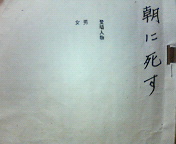 朝に死す
登場人物
男
女